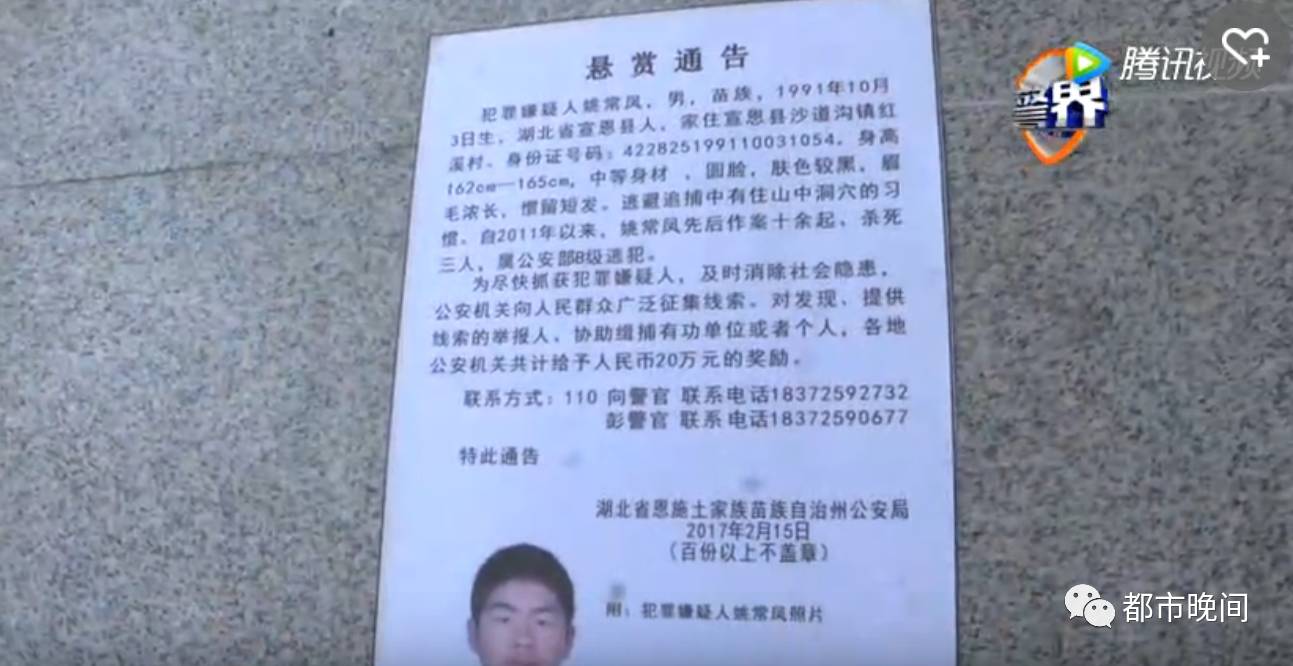 悬赏通告
犯罪嫌疑人姚常凤，男，苗族，1991年10月
3日生，湖北省宣恩县人，家住宣恩县沙道沟镇红
溪村。身份证号码：422825199110031054。身高
162cm—165cm，中等身材，圆脸，肤色较黑，眉
毛浓长，惯留短发。逃避追捕中有住山中洞穴的习
惯。自2011年以来，姚常凤先后作案十余起、杀死
三人，属公安部B级逃犯。
为尽快抓获犯罪嫌疑人，及时消除社会隐患，
公安机关向人民群众广泛征集线索。对发现、提供
线索的举报人、协助缉捕有功单位或者个人，各地
公安机关共计给予人民币20万元的奖励。
联系方式：110 向警官 联系电话18372592732
彭警官 联系电话18372590677
特此通告
湖北省恩施土家族苗族自治州公安局
2017年2月15日
（百份以上不盖章）
附：犯罪嫌疑人姚常凤照片
警界
腾讯视频
都市晚间